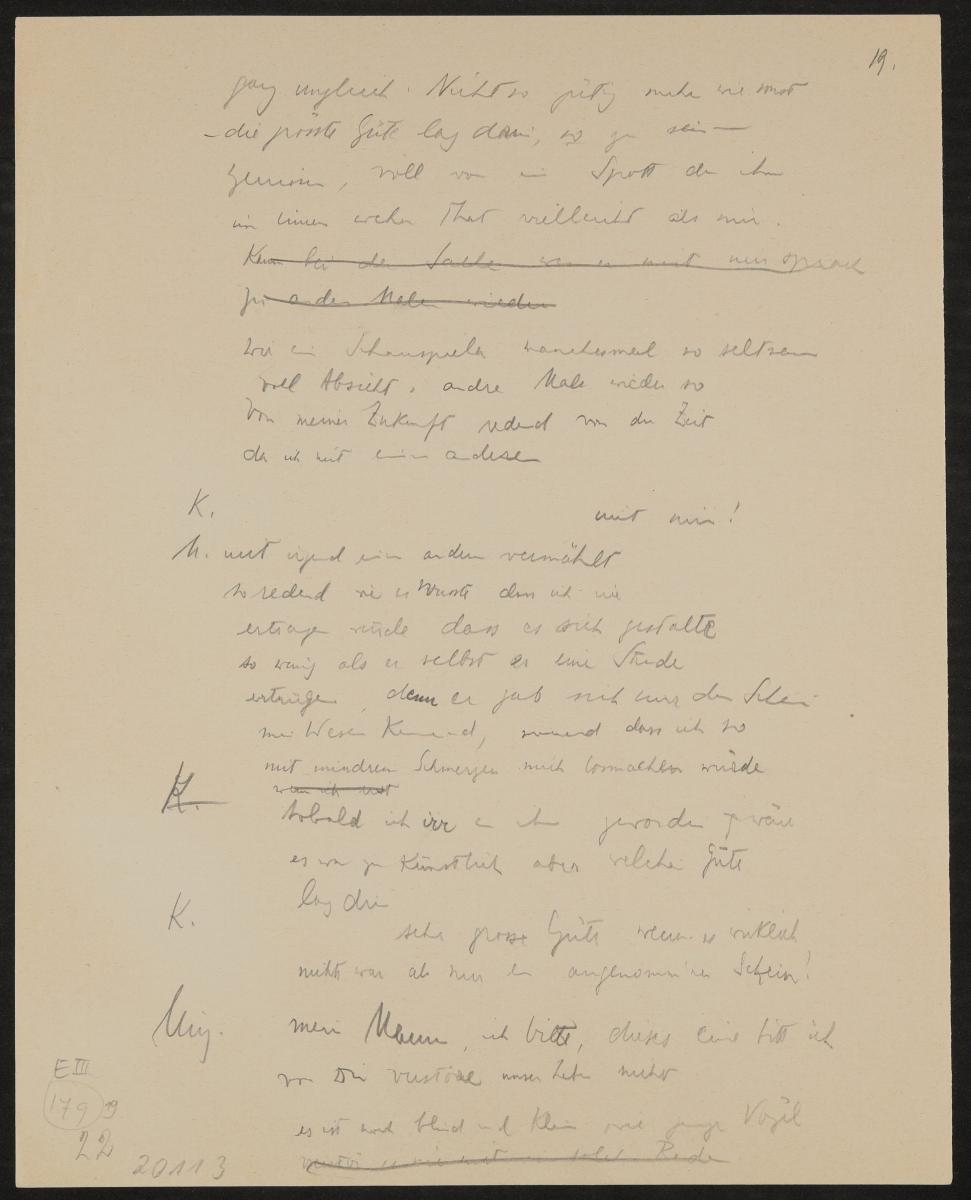 19.
ganz ungleich. Nicht so gütig mehr wie sonst
– die grösste Güte lag darin, so zu sein –
gerissen, voll von ein Spott der ihm
im innern weher That vielleicht als mir.
Kam bei der Sache wenn er mit mir sprach
zu andern Malen wieder
wie ein Schauspieler manchesmal so seltsam
voll Absicht, andre Male wieder so
Von meiner Zukunft redend von der Zeit
da ich mit einem anderen
K.
mit mir!
M. mit irgend einem andern vermählt
so redend wie er wusste dass ich nie
ertragen würde dass es sich gestalte
so wenig als er selbst es eine Stunde
ertrüge, denn er gab sich nur den Schein
mein Wesen kennend, dass ich so
mit mindren Schmerzen mich losmachen würde
wenn ich erst
K.
sobald ich irr an ihm geworden wäre
es war zu künstlich aber welche Güte
lag drin
K.
sehr grosse Güte wenn es wirklich
nichts war als nur ein angenommner Schein!
Miz.
mein Mann, ich bitte, dieses eine bitt ich
von Dir zerstöre unser Leben nicht
es ist noch blind und klein wie junge Vögel
mit solcher Rede
E III
179 19
22
20113